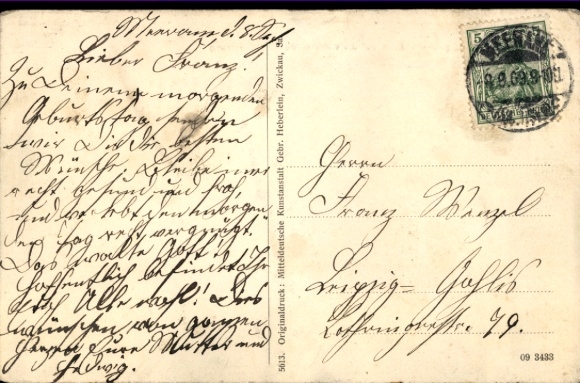 Meerane d. 8. Sept.
Lieber Franz!
Zu Deinem morgenden
Geburtstag senden
wir Dir die besten
Wünsche, bleibe immer
recht gesund und froh,
und verlebt den morgen
den Tag recht vergnügt.
Das walte Gott!
Hoffentlich befindet Ihr
Euch Alle wohl! Dies
wünschen von ganzen
Herzen Eure Mutter und
Hedwig.
5613. Originaldruck: Mitteldeutsche Kunstanstalt Gebr. Heberlein, Zwickau, Sa.
5
MEERANE
8.9.09.9-10V
Herrn
Franz Wenzel
Leipzig=Gohlis
Lothringerstr. 79.
09 3433